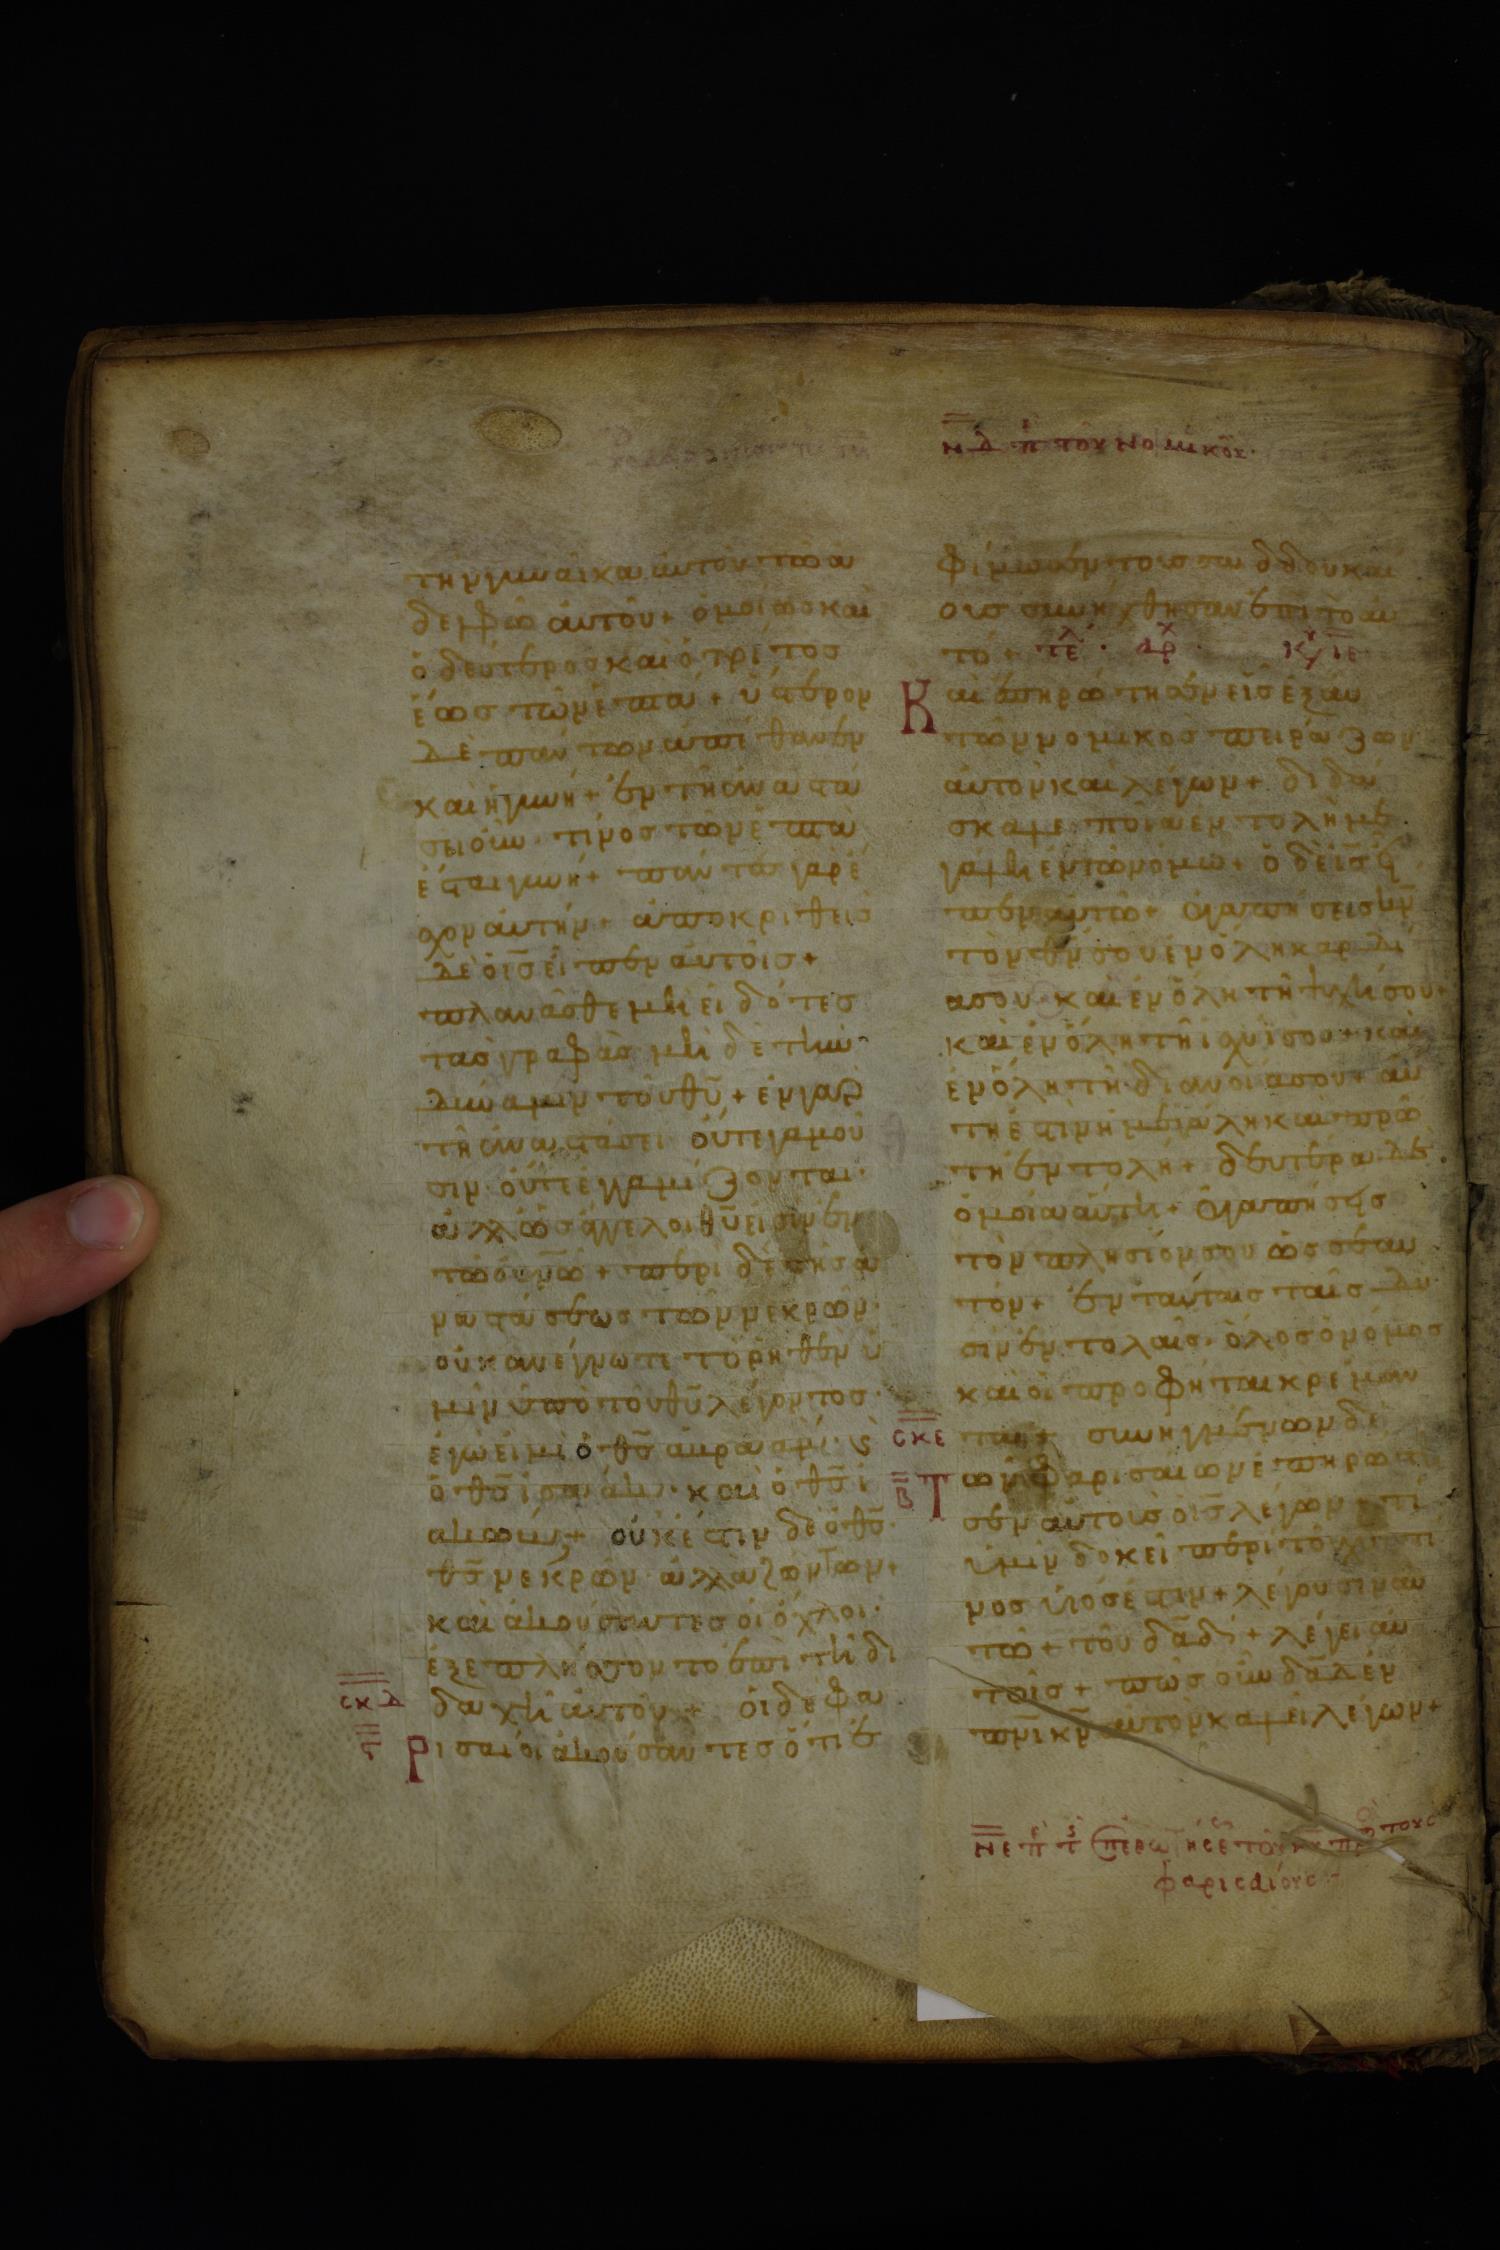 ν̅δ̅ π̅ τοῦ νομικοῦ·
τὴν γυναῖκα αὐτοῦ τῶ ἀ
δελφῶ αὐτοῦ + ὁμοίως καὶ
ὁ δεύτερος καὶ ὁ τρίτος
ἕως τῶν ἑπτά + ὕστερον
δὲ πάντων ἀπέθανεν
καὶ ἡ γυνή + ἐν τῆ ἀναστά
σει οὖν τίνος τῶν ἑπτὰ
ἔσται γυνή + πάντες γὰρ ἔ
σχον αὐτήν + ἀποκριθεὶς
δὲ ὁ ι̅ς̅ εἶπεν αὐτοῖς +
πλανᾶσθε μὴ εἰδότες
τὰς γραφὰς μὴ δὲ τὴν
δύναμιν τοῦ θ̅υ̅ + ἐν γὰρ
τῆ ἀναστάσει οὔτε γαμοῦ
σιν οὔτε ἐγγαμίζονται·
ἀλλ' ὡς ἄγγελοι θ̅υ̅ εἰσὶν ἐν
τῶ ου̅νω̅ + περὶ δὲ τῆς ἀ
ναστάσεως τῶν νεκρῶν·
οὐκ ἀνέγνωτε τὸ ῥηθὲν ὑ
μῖν ὑπὸ τοῦ θ̅υ̅ λέγοντος·
ἐγώ εἰμι ὁ θ̅ς̅ ἀβραάμ· ϗ
ὁ θ̅ς̅ ἰσαάκ· καὶ ὁ θ̅ς̅ ἰ
ακώβ + οὐκ ἔστιν δὲ ὁ θ̅ς̅
θ̅ς̅ νεκρῶν ἀλλὰ ζώντων +
καὶ ἀκούσαντες οἱ ὄχλοι·
ἐξεπλήσσοντο ἐπὶ τῆ δι
σκδ δαχῆ αὐτοῦ + οἱ δὲ φα
ς ρισαῖοι ἀκούσαντες ὅτι ἐ
φίμωσεν τοὺς σαδδουκαί
ους συνήχθησαν ἐπὶ τὸ αὐ
τό + τελ· αρχ κυ ιε
Καὶ ἐπηρώτησεν εἷς ἐξ αὐ
τῶν νομικὸς πειράζων
αὐτὸν καὶ λέγων + διδά
σκαλε ποία ἐντολὴ με
γάλη ἐν τῶ νόμω + ὁ δὲ ι̅ς̅ εἶ
πεν αὐτῶ + ἀγαπήσεις κ̅ν̅
τὸν θ̅ν̅ σου ἐν ὅλη καρδί
α σου· καὶ ἐν ὅλη τῆ ψυχῆ σου +
καὶ ἐν ὅλη τῆ ἰσχύϊ σου + καὶ
ἐν ὅλη τῆ διανοία σου + αὕ
τη ἐστὶν ἡ μεγάλη καὶ πρώ
τη ἐντολή + δευτέρα δὲ
ὁμοία αὐτῆ + ἀγαπήσεις
τὸν πλησίον σου ὡς σεαυ
τόν + ἐν ταύταις ταῖς δυ
σὶν ἐντολαῖς· ὅλος ὁ νόμος
καὶ οἱ προφῆται κρέμαν
σκε ται + συνηγμένων δὲ
β Τῶν φαρισαίων ἐπηρώτη
σεν αὐτοὺς ὁ ι̅ς̅ λέγων + τί
ὑμῖν δοκεῖ περὶ τοῦ χ̅υ̅ τί
νος υἱός ἐστιν + λέγουσιν αὐ
τῶ + τοῦ δα̅δ̅ + λέγει αὐ
τοῖς + πῶς οὖν δα̅δ̅ ἐν
π̅ν̅ι̅ κ̅ν̅ αὐτὸν καλεῖ λέγων +
ν̅ε̅ π τ ἐπερωτήσε τοῦ κυ πρ τους
φαρισαίους